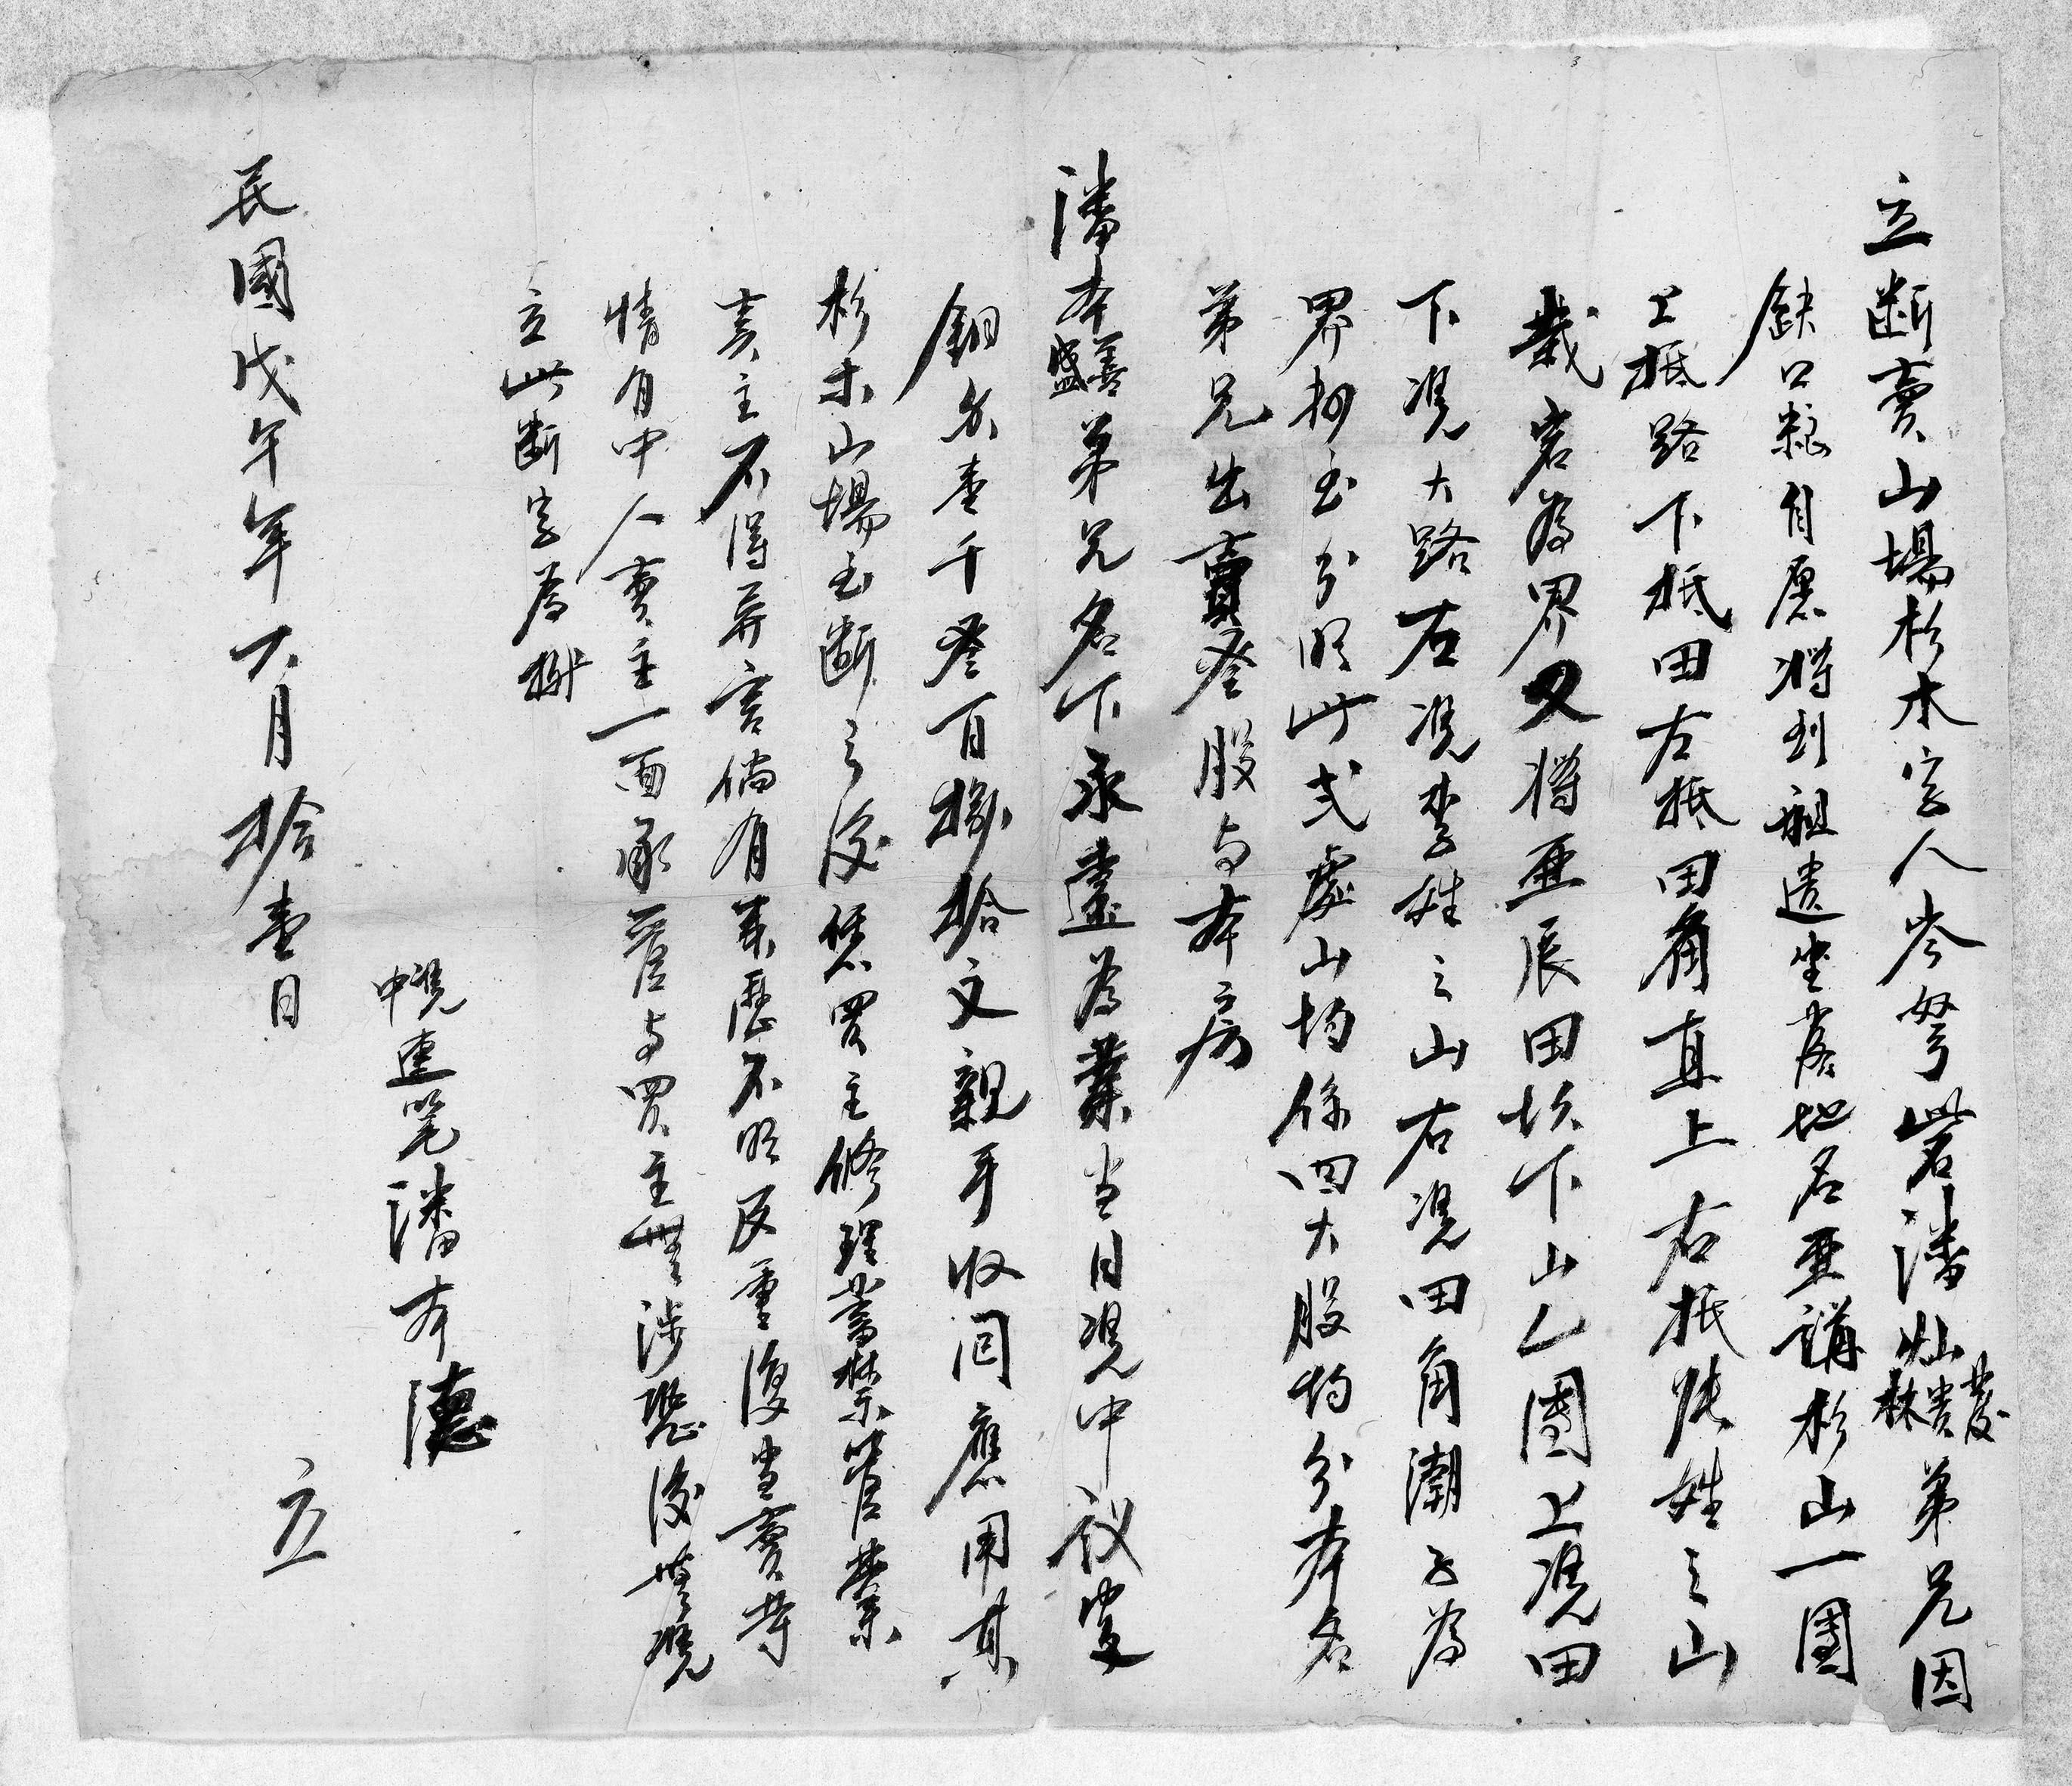 立断賣山場杉木字人岑努岩潘灿林貴發弟兄因
缺口粮自愿將到祖遗坐落地名亚講杉山一團
上抵路下抵田左抵田角直上右抵張姓之山
栽岩為界又將亚辰田坎下山乙團上凴田
下凴大路左凴李姓之山右凴田角潮上為
界扬至分明此弍處山均係四大股均分本名
弟兄出賣叁股与本房
潘本善盛弟兄名下永遠為業当日凴中议定
銅錢壹千叁百捌拾文親手收回應用其
杉木山場至断之後恁買主修理蓄禁管業
賣主不得异言倘有来歷不明反重復当賣等
情有中人賣主一面承管与買主無涉恐後無凴
立此断字為據
凴中連笔潘本德
民國戊午年六月拾壹日 立